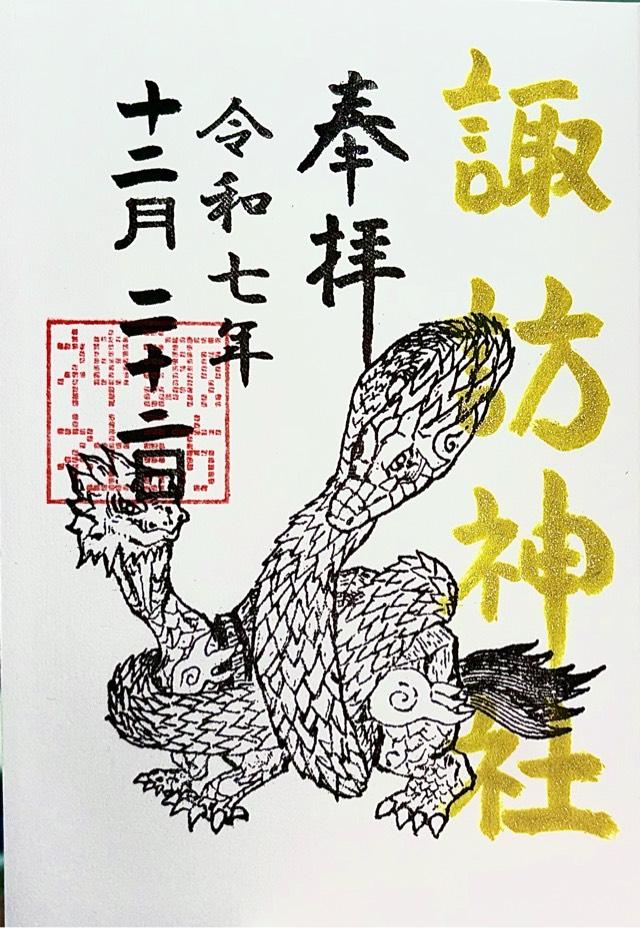 諏訪神社
奉拝
令和七年
十二月二十二日